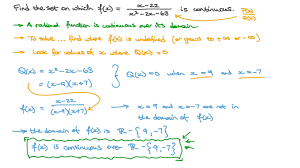 Find the set on which f(x) = (x-22)/(x²-2x-63) is continuous. P(x)/Q(x)
→ A rational function is continuous over its domain.
→ To solve... find where f(x) is undefined (or goes to +∞ or -∞)
→ Look for values of x where Q(x)=0
Q(x) = x²-2x-63 } Q(x)=0 when x=9 and x=-7
= (x-9)(x+7)
f(x) = (x-22)/((x-9)(x+7)) → x=9 and x=-7 are not in
the domain of f(x)
→ the domain of f(x) is ℝ-{9,-7}
f(x) is continuous over ℝ-{9,-7}